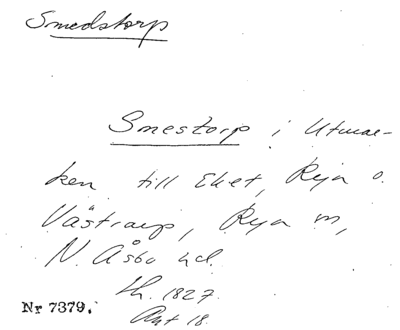 Smedstorp
Smestorp i Utmar-
ken till Eket, Rya o.
Västraup, Rya sn,
N. Åsbo hd.
lh. 1827.
Akt 18.
Nr 7379.